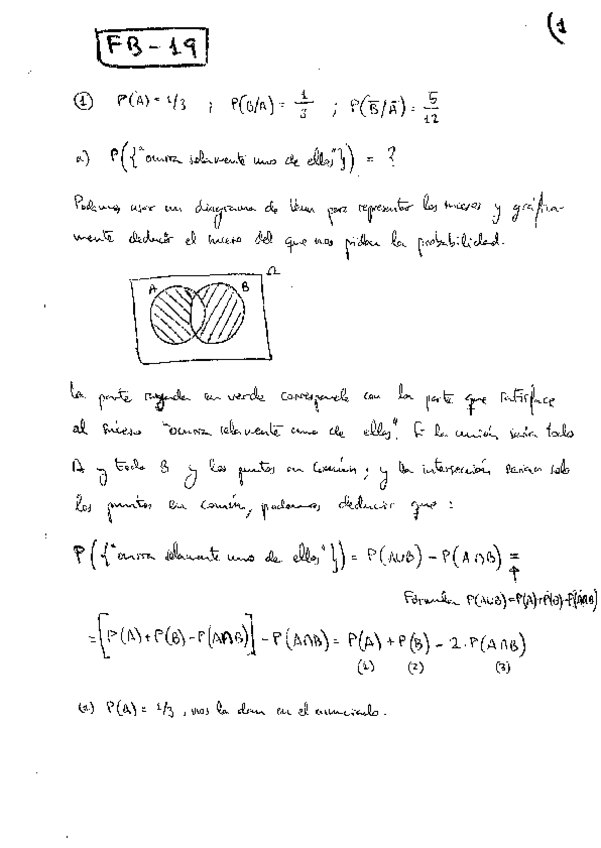 (1
FB-19
① P(A) = 1/3 ; P(B/A) = 1/3 ; P(B̅/A̅) = 5/12
a) P({"ocurra solamente uno de ellos"}) = ?
Podemos usar un diagrama de Venn para representar los sucesos y gráfica-
mente deducir el suceso del que nos piden la probabilidad.
Ω
A B
La parte rayada en verde corresponde con la parte que satisface
al suceso "ocurra solamente uno de ellos". Si la unión sería todo
A y todo B y los puntos en común; y la intersección serían solo
los puntos en común, podemos deducir que:
P({"ocurra solamente uno de ellos"}) = P(A∪B) - P(A∩B) =
↑
Fórmula P(A∪B)=P(A)+P(B)-P(A∩B)
=[P(A)+P(B)-P(A∩B)]-P(A∩B) = P(A)+P(B)-2·P(A∩B)
(1) (2) (3)
(1) P(A) = 1/3, nos la dan en el enunciado.